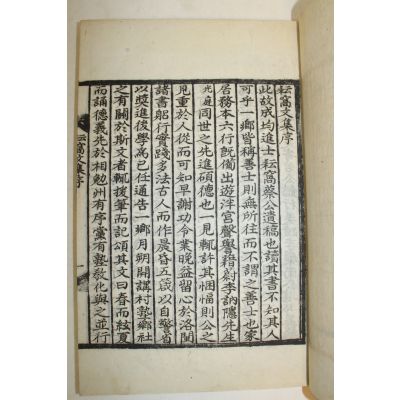 耘窩文集序
此故成均進士耘窩蔡公遺稿也讀其書不知其人
可乎一鄉皆稱善士則無所往而不謂之善士也家
居務本六行旣備出遊泮宮聲譽藉尉李訥隱先生
光庭同世之先進碩德也一見輒許其悃愊則公之
見重於人從而可知早謝功令業晩益留心於洛閩
諸書躬行實踐多法古人而作晨昏五箴以自警省
以奬進後學爲己任通告一鄉月朔開講村塾鄉社
之有關於斯文者輒援筆而記頌其文曰春而絃夏
而誦德義先於相勉州有序黨有塾敎化與之並行
耘窩文集序
一